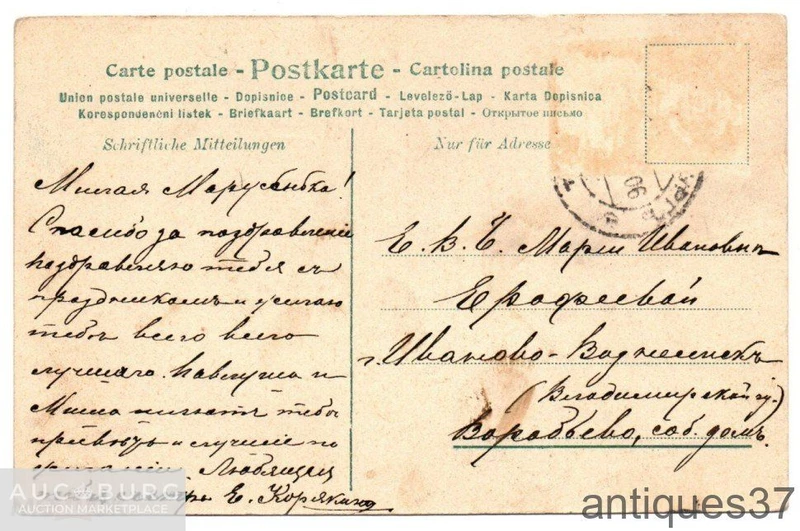 Carte postale - Postkarte - Cartolina postale
Union postale universelle - Dopisnice - Postcard - Levelező-Lap - Karta Dopisnica
Korespondenční listek - Briefkaart - Brefkort - Tarjeta postal - Открытое письмо
Schriftliche Mitteilungen
Nur für Adresse
Милая Марусенька!
Спасибо за поздравленіе
поздравляю тебя съ
праздникомъ и желаю
тебѣ всего всего
лучшаго. Павлуша и
Миша шлютъ тебѣ
привѣтъ и лучшіе по
желанія. Любящая
Е. Корякина
06
Е. В. Б. Маріи Ивановнѣ
Ерофеевой
г. Иваново-Вознесенскъ
(Владимирской гу.)
Воробьево, соб. домъ.
AUC BURG
AUCTION MARKETPLACE
antiques37